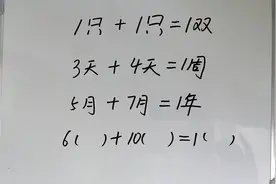 1只+1只=1双
3天+4天=1周
5月+7月=1年
6( )+10( )=1( )